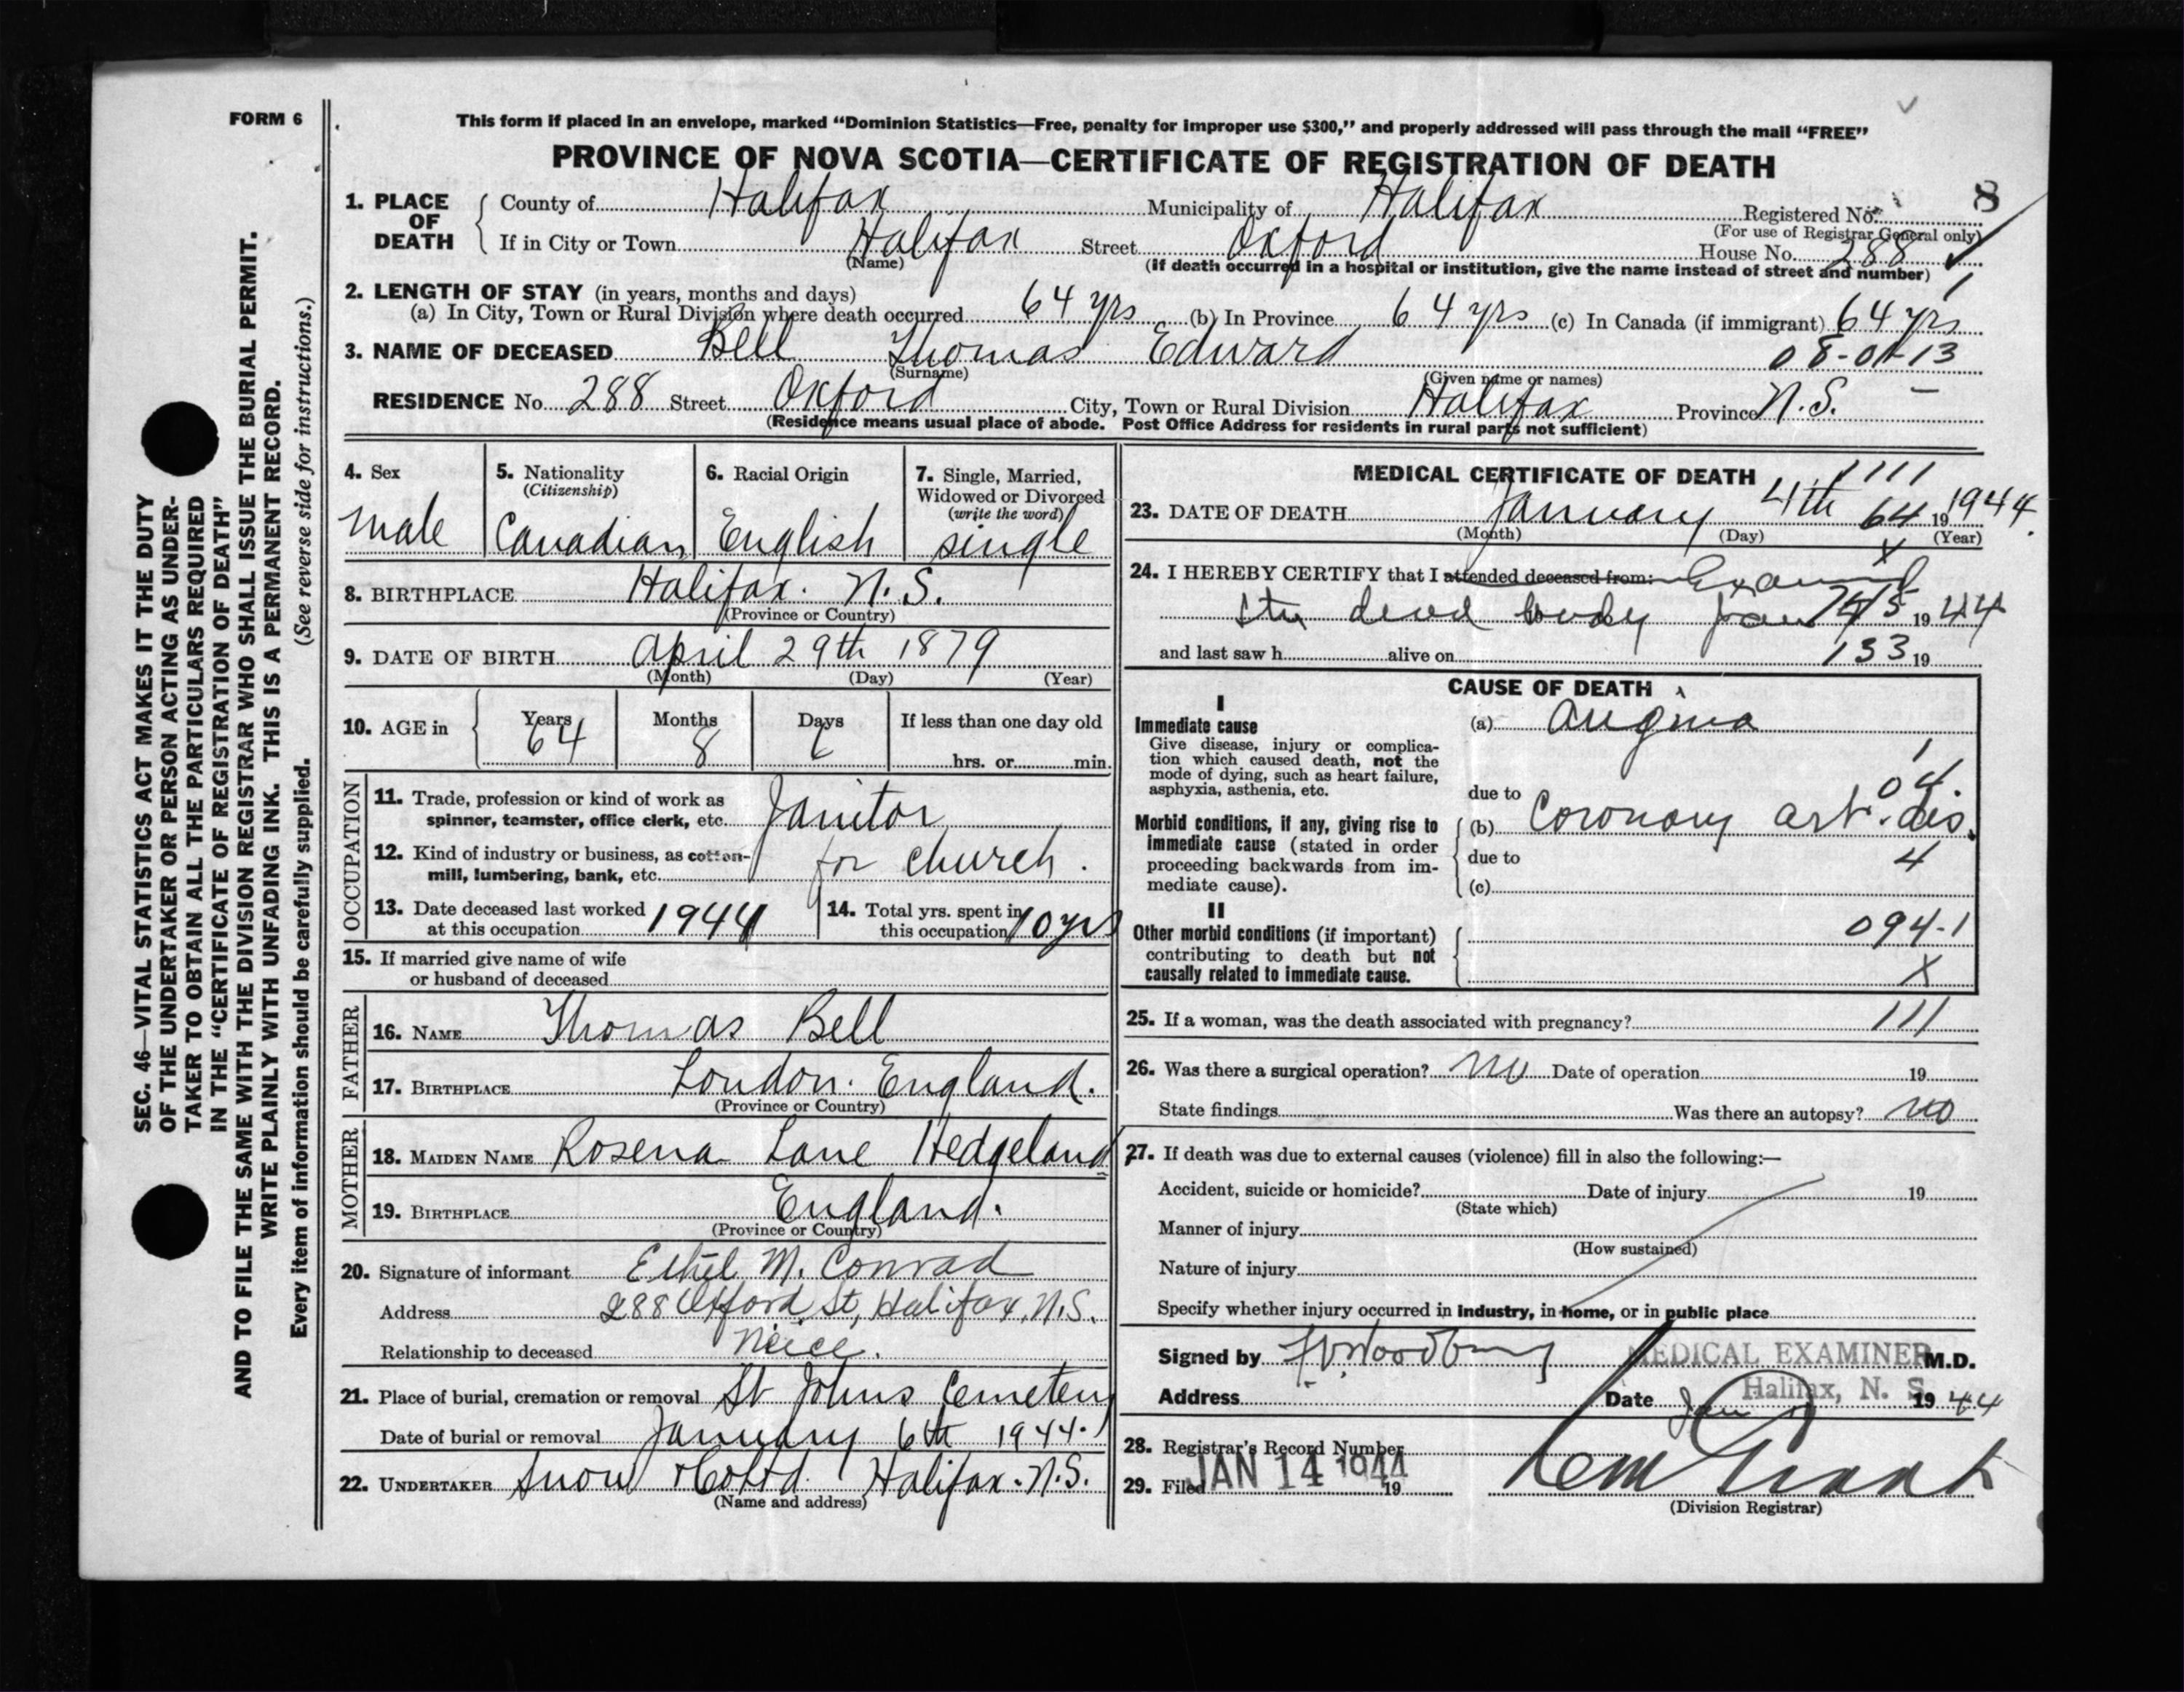 FORM 6
This form if placed in an envelope, marked “Dominion Statistics—Free, penalty for improper use $300,” and properly addressed will pass through the mail “FREE”
PROVINCE OF NOVA SCOTIA—CERTIFICATE OF REGISTRATION OF DEATH
1. PLACE OF DEATH
County of Halifax Municipality of Halifax Registered No. 8
(For use of Registrar General only)
If in City or Town Halifax Street Oxford House No. 288
(Name) (If death occurred in a hospital or institution, give the name instead of street and number)
2. LENGTH OF STAY (in years, months and days)
(a) In City, Town or Rural Division where death occurred 64 yrs (b) In Province 64 yrs (c) In Canada (if immigrant) 64 yrs
3. NAME OF DECEASED Bell Thomas Edward 08-01-13
(Surname) (Given name or names)
RESIDENCE No 288 Street Oxford City, Town or Rural Division Halifax Province N.S.
(Residence means usual place of abode. Post Office Address for residents in rural parts not sufficient)
SEC. 46—VITAL STATISTICS ACT MAKES IT THE DUTY
OF THE UNDERTAKER OR PERSON ACTING AS UNDER-
TAKER TO OBTAIN ALL THE PARTICULARS REQUIRED
IN THE “CERTIFICATE OF REGISTRATION OF DEATH”
AND TO FILE THE SAME WITH THE DIVISION REGISTRAR WHO SHALL ISSUE THE BURIAL PERMIT.
WRITE PLAINLY WITH UNFADING INK. THIS IS A PERMANENT RECORD.
Every item of information should be carefully supplied. (See reverse side for instructions.)
4. Sex
male
5. Nationality
(Citizenship)
Canadian
6. Racial Origin
English
7. Single, Married,
Widowed or Divorced
(write the word)
single
8. BIRTHPLACE Halifax. N.S.
(Province or Country)
9. DATE OF BIRTH April 29th 1879
(Month) (Day) (Year)
10. AGE in Years Months Days If less than one day old
64 8 6 hrs. or min.
OCCUPATION
11. Trade, profession or kind of work as
spinner, teamster, office clerk, etc. Janitor
12. Kind of industry or business, as cotton-
mill, lumbering, bank, etc. for church.
13. Date deceased last worked
at this occupation 1944
14. Total yrs. spent in
this occupation 10 yrs
15. If married give name of wife
or husband of deceased
FATHER
16. NAME Thomas Bell
17. BIRTHPLACE London. England.
(Province or Country)
MOTHER
18. MAIDEN NAME Rosena Lane Hedgeland
19. BIRTHPLACE England.
(Province or Country)
20. Signature of informant Ethel M. Conrad
Address 288 Oxford St, Halifax, N.S.
Relationship to deceased Neice.
21. Place of burial, cremation or removal St Johns Cemetery
Date of burial or removal January 6th 1944.
22. UNDERTAKER Snow & Co Ltd. Halifax. N.S.
(Name and address)
MEDICAL CERTIFICATE OF DEATH
1111
23. DATE OF DEATH January 4th 64 19 1944.
(Month) (Day) (Year)
X
24. I HEREBY CERTIFY that I attended deceased from: Examined
the dead body Jan 19 44
and last saw h alive on 133 19
CAUSE OF DEATH
I
Immediate cause
Give disease, injury or complica-
tion which caused death, not the
mode of dying, such as heart failure,
asphyxia, asthenia, etc.
(a) Angina
1
04.
due to
Morbid conditions, if any, giving rise to
immediate cause (stated in order
proceeding backwards from im-
mediate cause).
(b) Coronary art. dis.
due to 4
(c)
II
Other morbid conditions (if important)
contributing to death but not
causally related to immediate cause.
094-1
X
25. If a woman, was the death associated with pregnancy? 111
26. Was there a surgical operation? No Date of operation 19
State findings Was there an autopsy? no
27. If death was due to external causes (violence) fill in also the following:—
Accident, suicide or homicide? Date of injury 19
(State which)
Manner of injury
(How sustained)
Nature of injury
Specify whether injury occurred in industry, in home, or in public place
Signed by Woodbury MEDICAL EXAMINER M.D.
Halifax, N. S.
Address Date Jan 19 44
28. Registrar's Record Number
29. Filed JAN 14 1944 19
(Division Registrar)